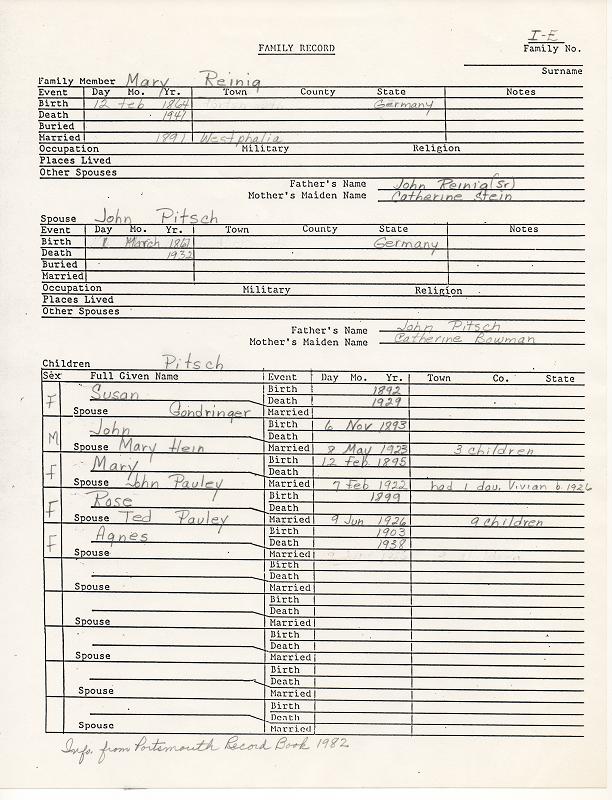 I-E
FAMILY RECORD Family No.
Surname
Family Member Mary Reinig
Event Day Mo. Yr. Town County State Notes
Birth 12 Feb 1864 Germany
Death 1941
Buried
Married 1891 Westphalia
Occupation Military Religion
Places Lived
Other Spouses
Father's Name John Reinig (Sr)
Mother's Maiden Name Catherine Stein
Spouse John Pitsch
Event Day Mo. Yr. Town County State Notes
Birth March 1861 Germany
Death 1932
Buried
Married
Occupation Military Religion
Places Lived
Other Spouses
Father's Name John Pitsch
Mother's Maiden Name Catherine Bowman
Children Pitsch
Sex Full Given Name Event Day Mo. Yr. Town Co. State
F Susan Birth 1892
Death 1929
Spouse Gondringer Married
M John Birth 6 Nov 1893
Death
Spouse Mary Hein Married 8 May 1923 3 children
F Mary Birth 12 Feb 1895
Death
Spouse John Pauley Married 7 Feb 1922 had 1 dau. Vivian b. 1926
F Rose Birth 1899
Death
Spouse Ted Pauley Married 9 Jun 1926 9 children
F Agnes Birth 1903
Death 1938
Spouse Married
Birth
Death
Spouse Married
Birth
Death
Spouse Married
Birth
Death
Spouse Married
Birth
Death
Spouse Married
Birth
Death
Spouse Married
Info. from Portsmouth Record Book 1982